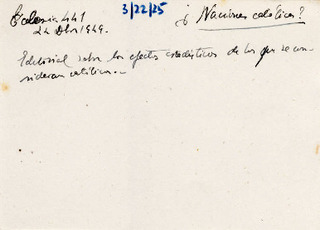 Ecclesia 441
24 Dbre 1949.
3/22/25
¿ Naciones católicas?
Editorial sobre los efectos estadísticos de los que se con-
sideran católicos.-